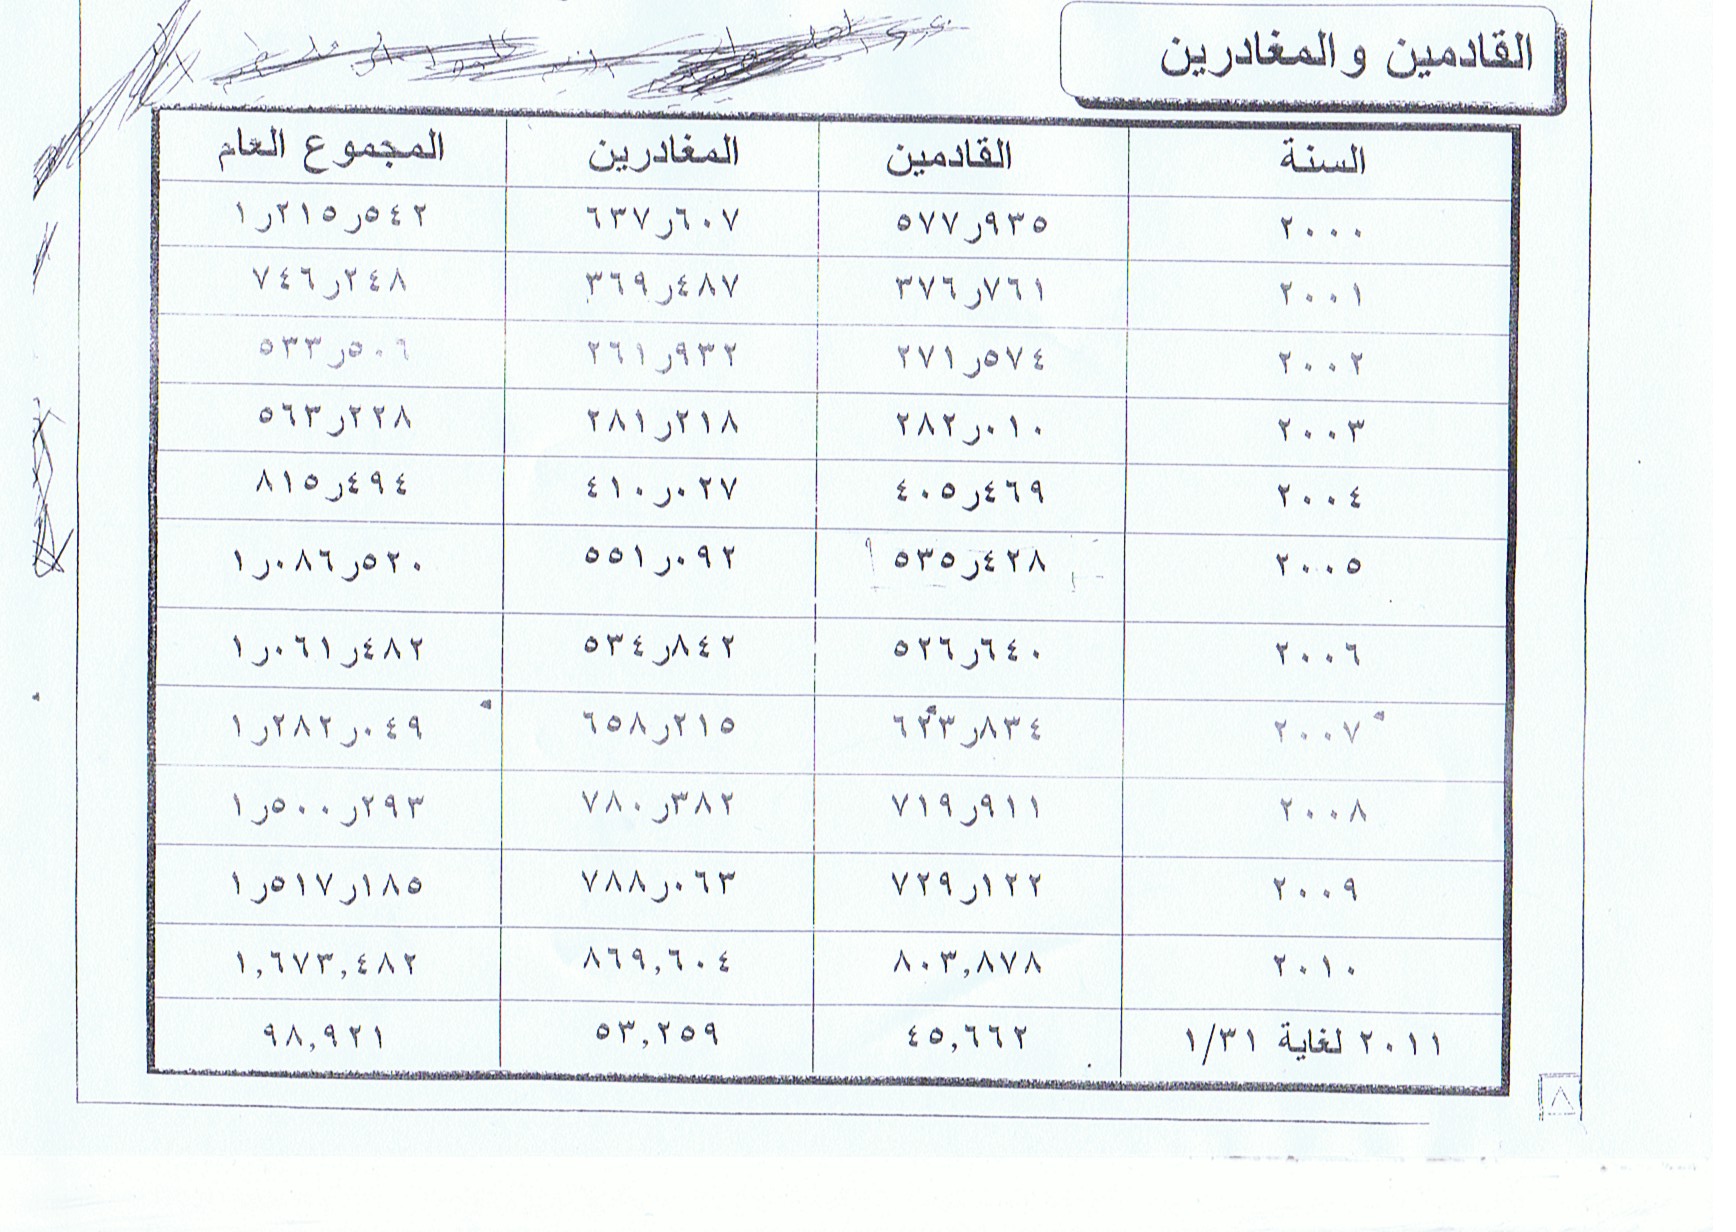 القادمين والمغادرين
السنة القادمين المغادرين المجموع العام
٢٠٠٠ ٥٧٧ر٩٣٥ ٦٣٧ر٦٠٧ ١ر٢١٥ر٥٤٢
٢٠٠١ ٣٧٦ر٧٦١ ٣٦٩ر٤٨٧ ٧٤٦ر٢٤٨
٢٠٠٢ ٢٧١ر٥٧٤ ٢٦١ر٩٣٢ ٥٣٣ر٥٠٦
٢٠٠٣ ٢٨٢ر٠١٠ ٢٨١ر٢١٨ ٥٦٣ر٢٢٨
٢٠٠٤ ٤٠٥ر٤٦٩ ٤١٠ر٠٢٧ ٨١٥ر٤٩٤
٢٠٠٥ ٥٣٥ر٤٢٨ ٥٥١ر٠٩٢ ١ر٠٨٦ر٥٢٠
٢٠٠٦ ٥٢٦ر٦٤٠ ٥٣٤ر٨٤٢ ١ر٠٦١ر٤٨٢
٢٠٠٧ ٦٢٣ر٨٣٤ ٦٥٨ر٢١٥ ١ر٢٨٢ر٠٤٩
٢٠٠٨ ٧١٩ر٩١١ ٧٨٠ر٣٨٢ ١ر٥٠٠ر٢٩٣
٢٠٠٩ ٧٢٩ر١٢٢ ٧٨٨ر٠٦٣ ١ر٥١٧ر١٨٥
٢٠١٠ ٨٠٣,٨٧٨ ٨٦٩,٦٠٤ ١,٦٧٣,٤٨٢
٢٠١١ لغاية ١/٣١ ٤٥,٦٦٢ ٥٣,٢٥٩ ٩٨,٩٢١
٨